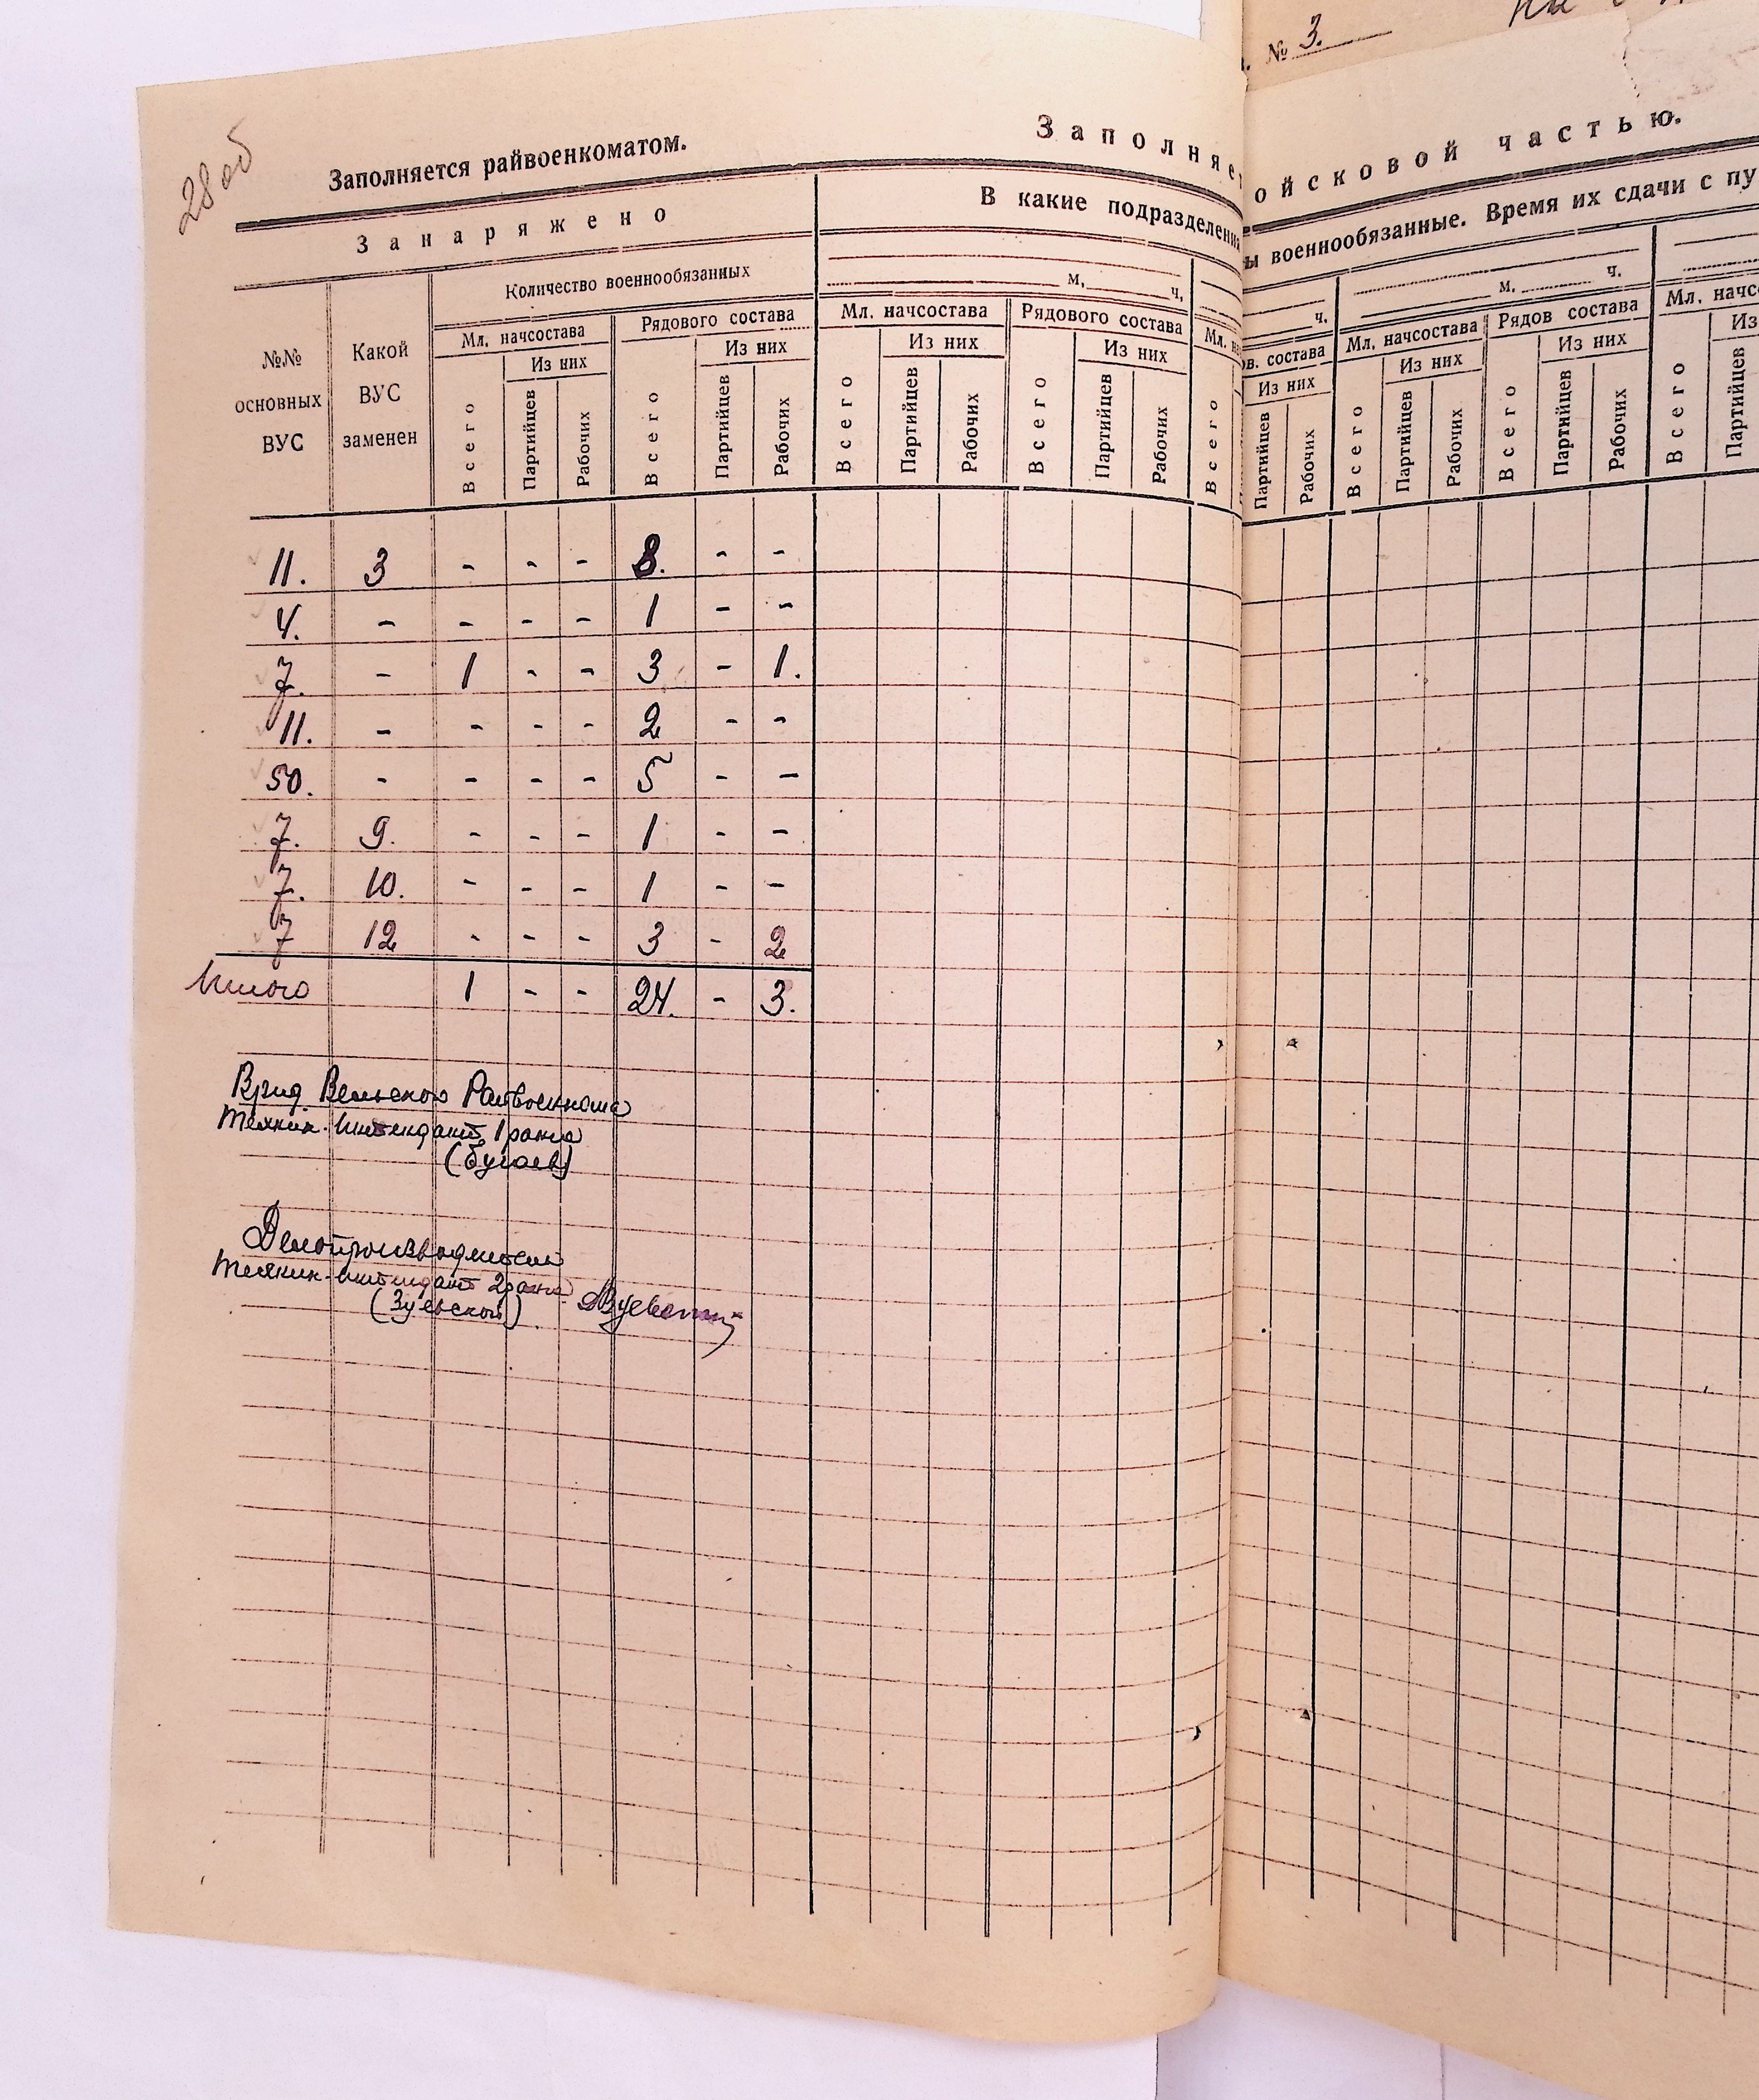 № 3.
28 об
Заполняется райвоенкоматом.
Заполняе
ойсковой частью.
Занаряжено
В какие подразделени
ы военнообязанные. Время их сдачи с пу
№№ основных ВУС
Какой ВУС заменен
Количество военнообязанных
Мл. начсостава
Рядового состава
Из них
Из них
Всего Партийцев Рабочих Всего Партийцев Рабочих
м. ч.
Мл. начсостава Рядового состава
Из них Из них
Всего Партийцев Рабочих Всего Партийцев Рабочих
Мл. н
Всего
ч.
ов. состава
Из них
Партийцев Рабочих
м. ч.
Мл. начсостава Рядов состава
Из них Из них
Всего Партийцев Рабочих Всего Партийцев Рабочих
Мл. начсо
Из
Всего Партийцев
11. 3 - - - 8. - -
4. - - - - 1 - -
7. - 1 - - 3 - 1.
11. - - - - 2 - -
50. - - - - 5 - -
7. 9. - - - 1 - -
7. 10. - - - 1 - -
7 12 - - - 3 - 2
Итого 1 - - 24. - 3.
Врид. Вельского Райвоенкома
Техник-интендант 1 ранга
(Бугаев)
Делопроизводитель
Техник-интендант 2 ранга
(Зуевской)